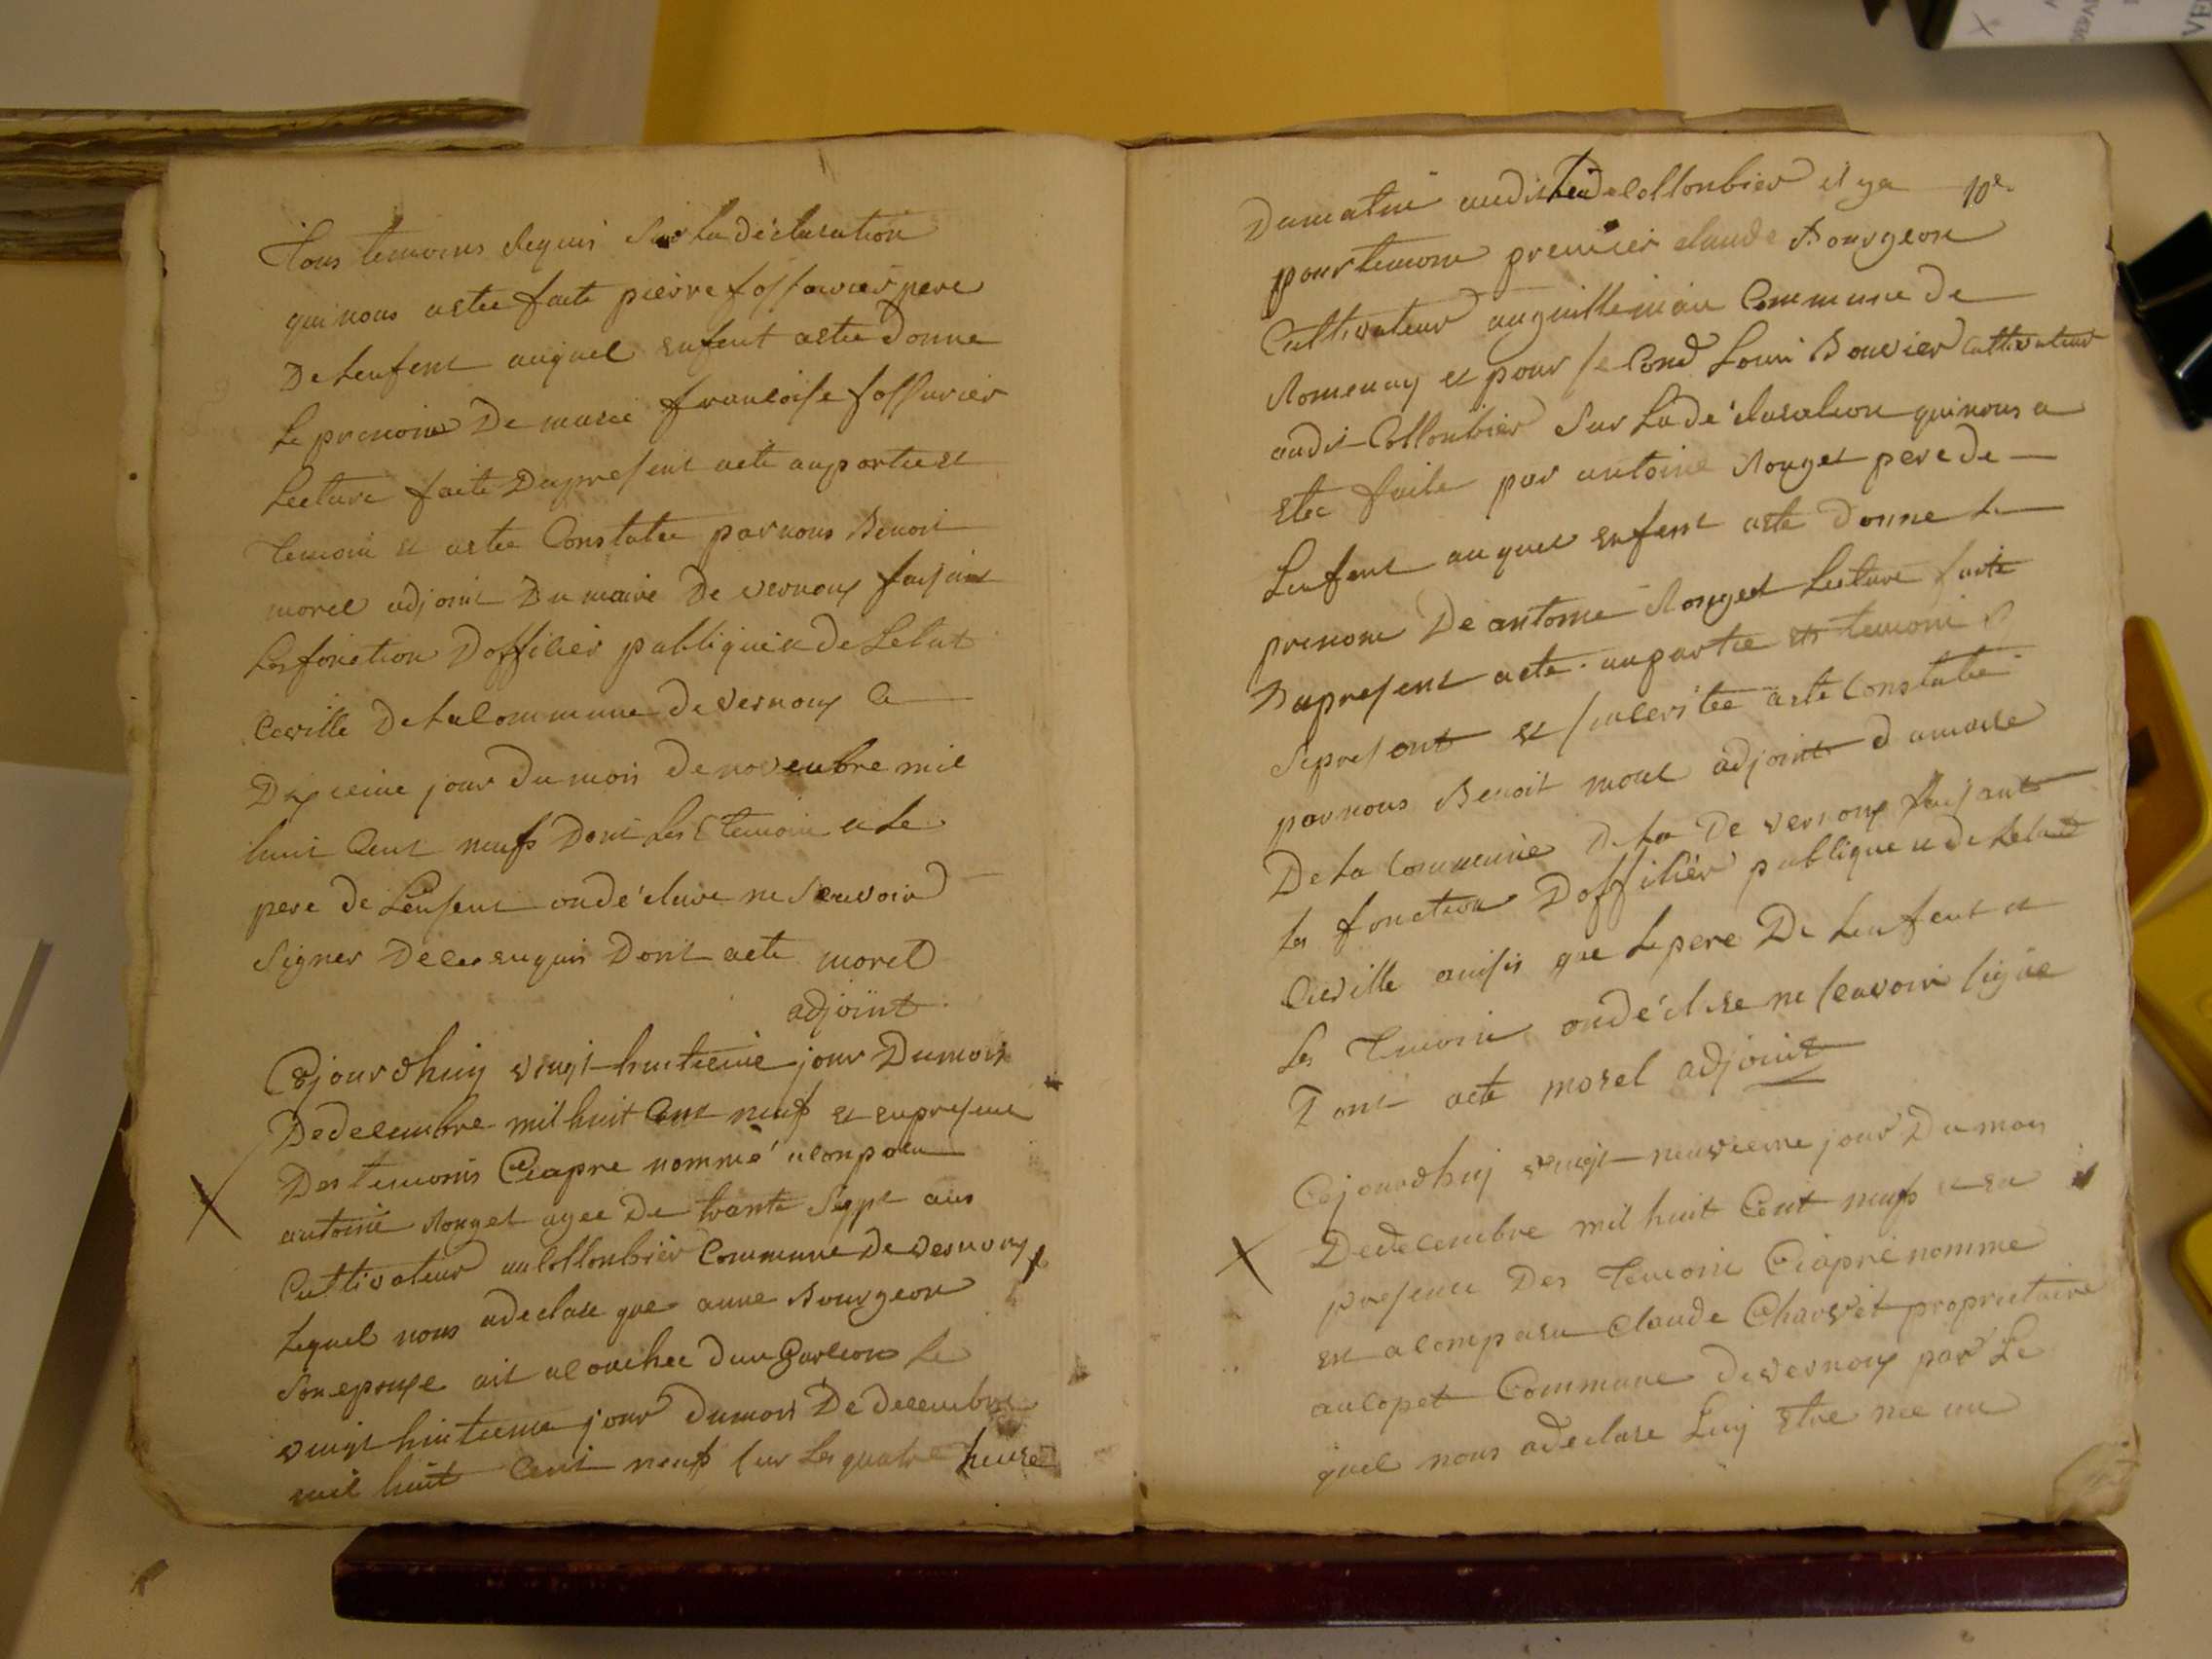 Tous temoins Requis Sur La déclaration
qui nous a etee faite pierre fossurier pere
De Lenfent auquel enfent a etee Donne
Le prenoim De marie francoise fossurier
Lecture faite Du present acte au partie et
Temoin et a etee Constatee par nous Benoit
morel adjoint Du maire De vernoux faisant
Les fonction Dofficier publique et de Letat
Ceville De La Commune De vernoux Ce
jour du mois de novembre mil
huit Cent neufs Dont Les temoin et Le
pere de Lenfent on déclare ne Scavoir
Signer De Ce enquis Dont acte morel
adjoint
Cejourdhuy vingt huitieme jour Dumois
De decembre mil huit Cent neuf et en presence
Des temoins Ciapre nommé a Conparu
antoine Rouget agee De trante Sept ans
Cultivateur au Collonbier Commune De vernoux
Lequel nous a declare que anne Bourgeon
Son epouse ait acouchee dun Garcon Le
vingt huitieme jour dumois De decembre
mil huit Cent neuf sur Les quatre heure
Dumatin audit Lieu de Collonbier il ya 10e.
pour temoin premier claude Bourgeon
Cultivateur au guilleminin Commune de
Romenay et pour se Cond Loui Bouvier cultivateur
audit Collonbier Sur La déclaration qui nous a
etee faite par antoine Rouget pere de
Lenfent auquel enfent a ete donne Le
prenom De antoine Rouget Lecture faite
Du present acte au partie et temoin
et sinceritee a ete Constatee
par nous Benoit morel adjoint du maire
De La Commune De La De vernoux faisant
Les fonction Dofficiér publique et de Letat
Civille ainsis que Le pere De Lenfent et
Les Temoin on déclare ne scavoir signe
Dont acte morel adjoint
Cejourdhuj vingt neuvieme jour Du mois
De decembre mil huit Cent neufs et en
presence Des Temoin Ciapre nomme
est a Comparu Claude Charvet proprietaire
au Copet Commune de vernoux par Le
quel nous a declare Luy etre nee un